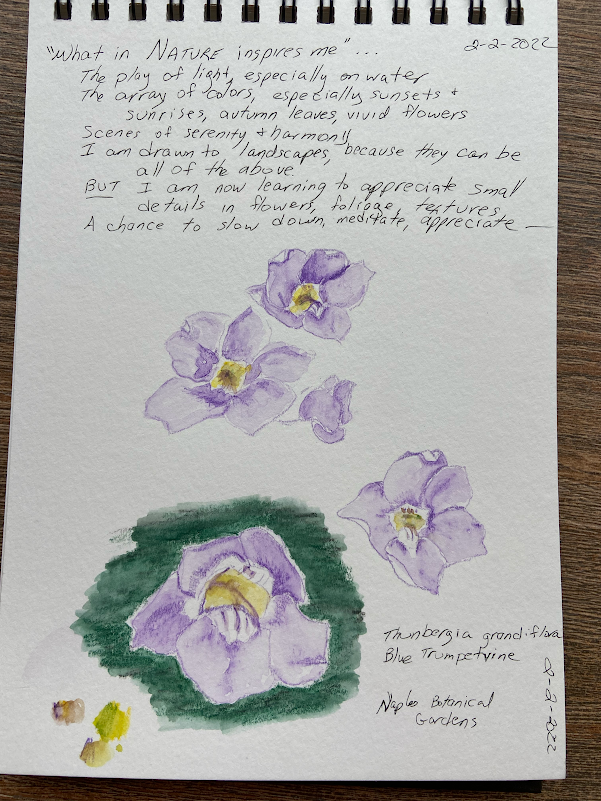 "What in NATURE inspires me"... 2-2-2022
The play of light, especially on water
The array of colors, especially sunsets +
sunrises, autumn leaves, vivid flowers
Scenes of serenity + harmony
I am drawn to landscapes, because they can be
all of the above
BUT I am now learning to appreciate small
details in flowers, foliage, textures
A chance to slow down, meditate, appreciate —
Thunbergia grandiflora
Blue Trumpetvine
Naples Botanical
Gardens
2-2-2022